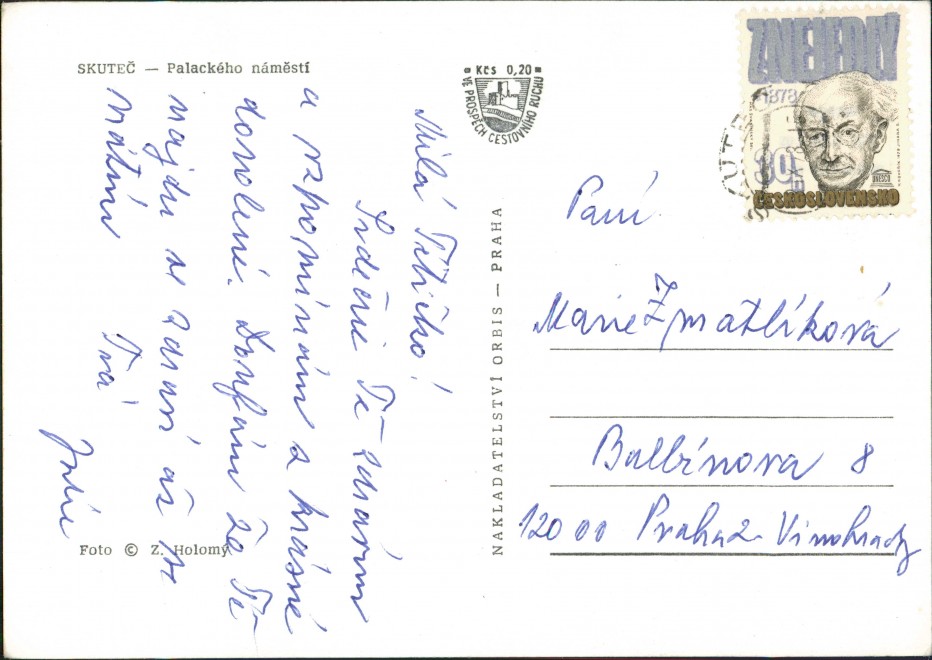 SKUTEČ — Palackého náměstí
Kčs 0,20
VE PROSPĚCH CESTOVNÍHO RUCHU
Z NEJEDLÝ
1878
30h
UNESCO
ČESKOSLOVENSKO
Milá Tetičko!
Srdečně Tě zdravím
a vzpomínám z krásné
dovolené. Doufám že Tě
najdu ve zdraví až se
vrátím
Tvá
Julie
NAKLADATELSTVÍ ORBIS — PRAHA
Paní
Marie Zmatlíková
Balbínova 8
120 00 Praha 2 Vinohrady
Foto © Z. Holomý